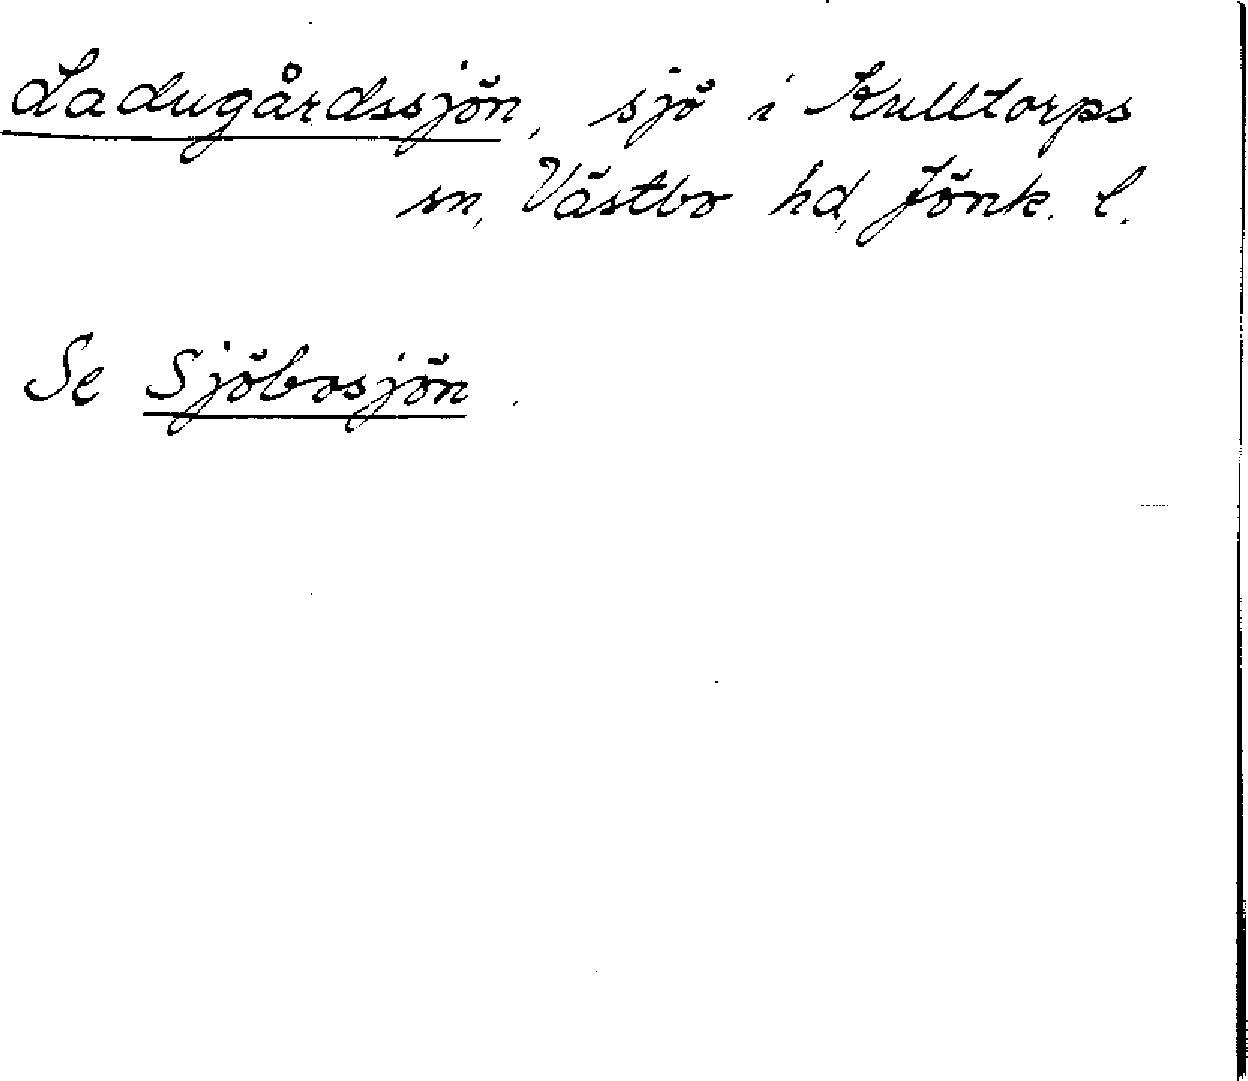 Ladugårdssjön, sjö i Kulltorps
sn, Västbo hd, Jönk. l.
Se Sjöbosjön.